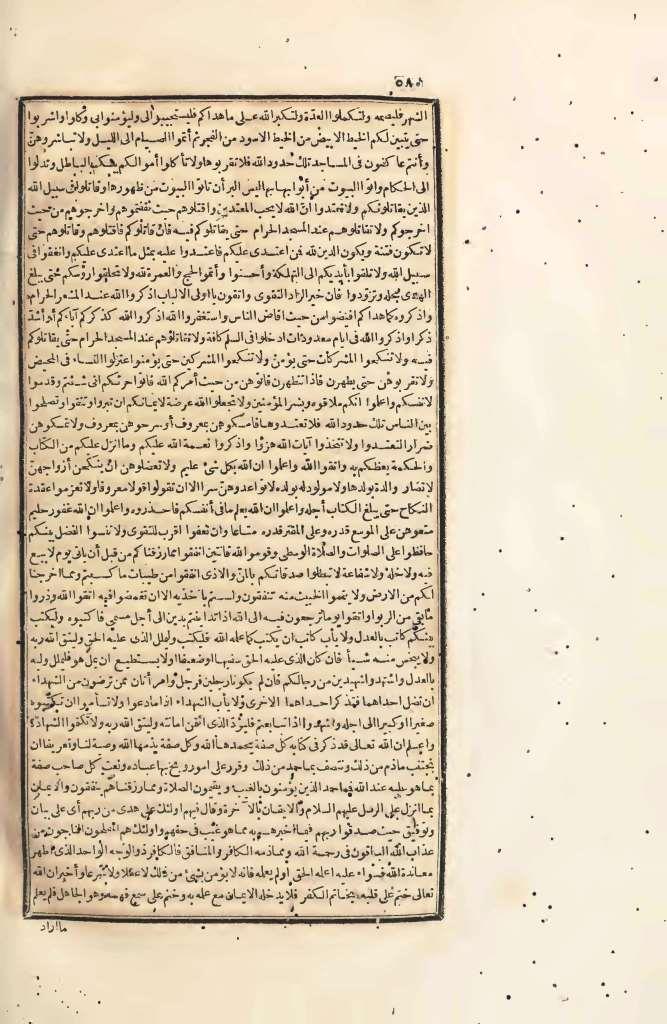 ٥٨٠
الشهر فليصمه ولتكملوا العدّة ولتكبر الله على ما هداكم فليستجيبوا لى وليؤمنوا بى وكلوا واشربوا
حتى يتبين لكم الخيط الابيض من الخيط الاسود من الفجر ثم أتموا الصيام الى الليل ولا تباشروهنّ
وأنتم عاكفون فى المساجد تلك حدود الله فلا تقربوها ولا تأكلوا أموالكم بينكم بالباطل وتدلوا
الى الحكام وأتوا البيوت من أبوابها ليس البر أن تأتوا البيوت من ظهورها وقاتلوا فى سبيل الله
الذين يقاتلونكم ولا تعتدوا انّ الله لا يحب المعتدين واقتلوهم حيث ثقفتموهم واخرجوهم من حيث
اخرجوكم ولا تقاتلوهم عند المسجد الحرام حتى يقاتلوكم فيه فان قاتلوكم فاقتلوهم وقاتلوهم حتى
لا تكون فتنة ويكون الدين لله فمن اعتدى عليكم فاعتدوا عليه بمثل ما اعتدى عليكم وانفقوا فى
سبيل الله ولا تلقوا بأيديكم الى التهلكة وأحسنوا وأتموا الحج والعمرة لله ولا تحلقوا رؤسكم حتى يبلغ
الهدى محله وتزودوا فان خير الزاد التقوى واتقون يا اولى الالباب اذكروا الله عند المشعر الحرام
واذكروه كما هداكم افيضوا من حيث افاض الناس واستغفروا الله اذكروا الله كذكركم آباءكم أو أشدّ
ذكرا واذكروا الله فى ايام معدودات ادخلوا فى السلم كافة ولا تقاتلوهم عند المسجد الحرام حتى يقاتلوكم
فيه ولا تنكحوا المشركات حتى يؤمنّ ولا تنكحوا المشركين حتى يؤمنوا اعتزلوا النساء فى المحيض
ولا تقربوهن حتى يطهرن فاذا تطهرن فأتوهن من حيث أمركم الله فأتوا حرثكم انى شئتم وقدموا
لانفسكم واعلموا انكم ملاقوه وبشر المؤمنين ولا تجعلوا الله عرضة لايمانكم ان تبروا وتتقوا وتصلحوا
بين الناس تلك حدود الله فلا تعتدوها فامسكوهن بمعروف أو سرحوهن بمعروف ولا تمسكوهن
ضرارا لتعتدوا ولا تتخذوا آيات الله هزؤا واذكروا نعمة الله عليكم وما انزل عليكم من الكتاب
والحكمة يعظكم به واتقوا الله واعلموا ان الله بكل شئ عليم ولا تعضلوهن ان ينكحن أزواجهنّ
لا تضار والدة بولدها ولا مولود له بولده لا تواعدوهنّ سرا الا ان تقولوا قولا معروفا ولا تعزموا عقدة
النكاح حتى يبلغ الكتاب أجله واعلموا ان الله يعلم ما فى أنفسكم فاحذروه واعلموا ان الله غفور حليم
متعوهن على الموسع قدره وعلى المقتر قدره متاعا وان تعفوا اقرب للتقوى ولا تنسوا الفضل بينكم
حافظوا على الصلوات والصلاة الوسطى وقوموا لله قانتين انفقوا مما رزقناكم من قبل أن يأتى يوم لا بيع
فيه ولا خلة ولا شفاعة لا تبطلوا صدقاتكم بالمنّ والاذى انفقوا من طيبات ما كسبتم ومما اخرجنا
لكم من الارض ولا تيمموا الخبيث منه تنفقون ولستم بآخذيه الا ان تغمضوا فيه اتقوا الله وذروا
ما بقى من الربوا واتقوا يوما ترجعون فيه الى الله اذا تداينتم بدين الى أجل مسمى فاكتبوه وليكتب
بينكم كاتب بالعدل ولا يأب كاتب ان يكتب كما علمه الله فليكتب وليملل الذى عليه الحق وليتق الله ربه
ولا يبخس منه شيأ فان كان الذى عليه الحق سفيها او ضعيفا او لا يستطيع ان يملّ هو فليملل وليه
بالعدل واشهدوا شهيدين من رجالكم فان لم يكونا رجلين فرجل وامرأتان ممن ترضون من الشهداء
ان تضل احداهما فتذكر احداهما الاخرى ولا يأب الشهداء اذا ما دعوا ولا تسأموا ان تكتبوه
صغيرا او كبيرا الى اجله واشهدوا اذا تبايعتم فليؤدّ الذى ائتمن امانته وليتق الله ربه ولا تكتموا الشهادة
واعلم ان الله تعالى قد ذكر فى كتابه كل صفة يحمدها الله وكل صفة يذمها الله وصية لنا وتعريفا ان
نجتنب ما ذم من ذلك ونتصف بما حمد من ذلك وقرر على امور وبخ بها عباده ونعت كل صاحب صفة
بما هو عليه عند الله فما حمد الذين يؤمنون بالغيب ويقيمون الصلاة ومما رزقناهم ينفقون والايمان
بما انزل على الرسل عليهم السلام والايقان بالآخرة وقال فيهم اولئك على هدى من ربهم أى على بيان
وتوفيق حيث صدقوا ربهم فيما اخبرهم به مما هو غيب فى حقهم واولئك هم المفلحون الناجون من
عذاب الله الباقون فى رحمة الله ومما ذمه الكافر والمنافق فالكافر ذو الوجه الواحد الذى اظهر
معاندة الله فسواء عليه اعلمه الحق او لم يعلمه فانه لا يؤمن بشئ من ذلك لا عقلا ولا شرعا وأخبر ان الله
تعالى ختم على قلبه بخاتم الكفر فلا يدخله الايمان مع علمه به وختم على سمع فهمه وهو الجاهل فلم يعلم
ما اراد